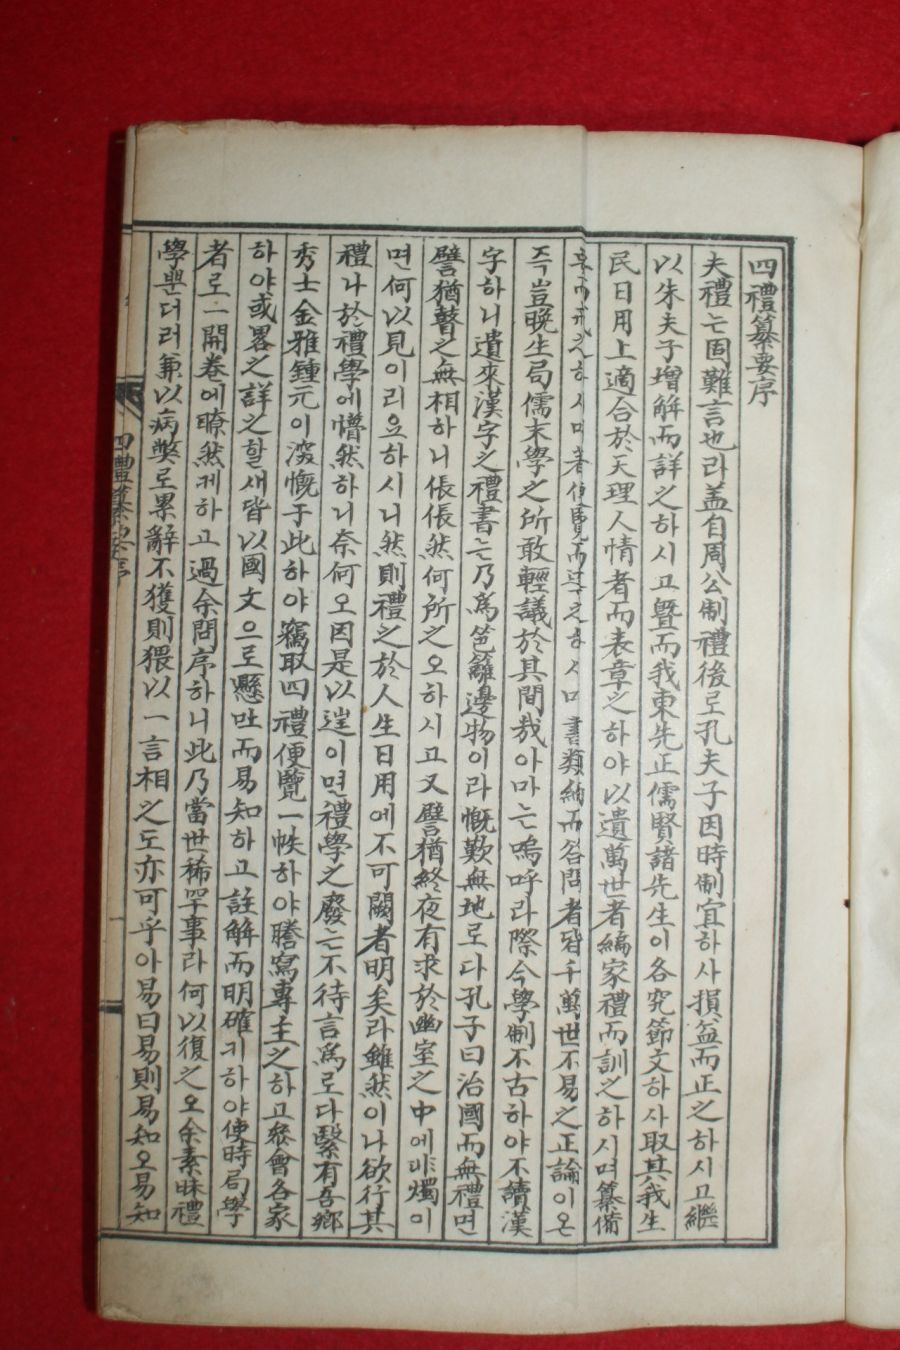 四禮纂要序
夫禮는固難言也라盖自周公制禮後로孔夫子因時制宜하사損益而正之하시고繼
以朱夫子增解而詳之하시고曁而我東先正儒賢諸先生이各究節文하사取其我生
民日用上適合於天理人情者而表章之하야以遺萬世者編家禮而訓之하시며纂備
而 之하시며著便覽而 之하시며書類納而答問者皆千萬世不易之正論이온
즉豈晩生局儒末學之所敢輕議於其間哉아마는嗚呼라際今學制不古하야不讀漢
字하니遺來漢字之禮書는乃爲笆籬邊物이라慨歎無地로다孔子曰治國而無禮면
譬猶瞽之無相하니倀倀然何所之오하시고又譬猶終夜有求於幽室之中에非燭이
면何以見이리요하시니然則禮之於人生日用에不可闕者明矣라雖然이나欲行其
禮나於禮學에懵然하니奈何오因是以迬이면禮學之廢는不待言爲로다繄有吾鄉
秀士金雅鍾元이深慨于此하야竊取四禮便覽一帙하야謄寫專主之하고參會各家
하야或畧之詳之할새皆以國文으로懸吐而易知하고註解而明確케하야使時局學
者로一開卷에瞭然케하고過余問序하니此乃當世稀罕事라何以復之오余素昧禮
學뿐더러兼以病獘로累辭不獲則猥以一言相之도亦可乎아易曰易則易知오易知
四禮纂要序